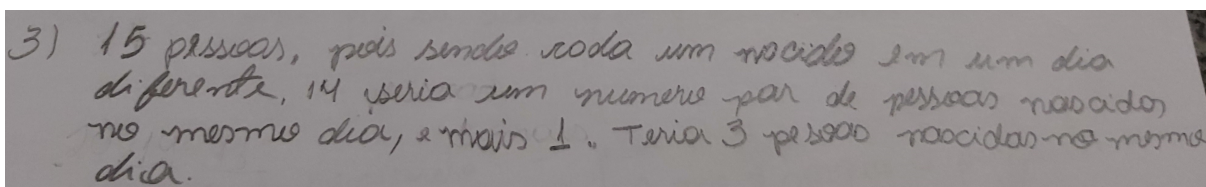 3) 15 pessoas, pois sendo coda um nocido em um dia
diferente, 14 seria um numero par de pessoas nascidos
no mesmo dia, e mais 1. Teria 3 pesoas nascidas no mesmo
dia.